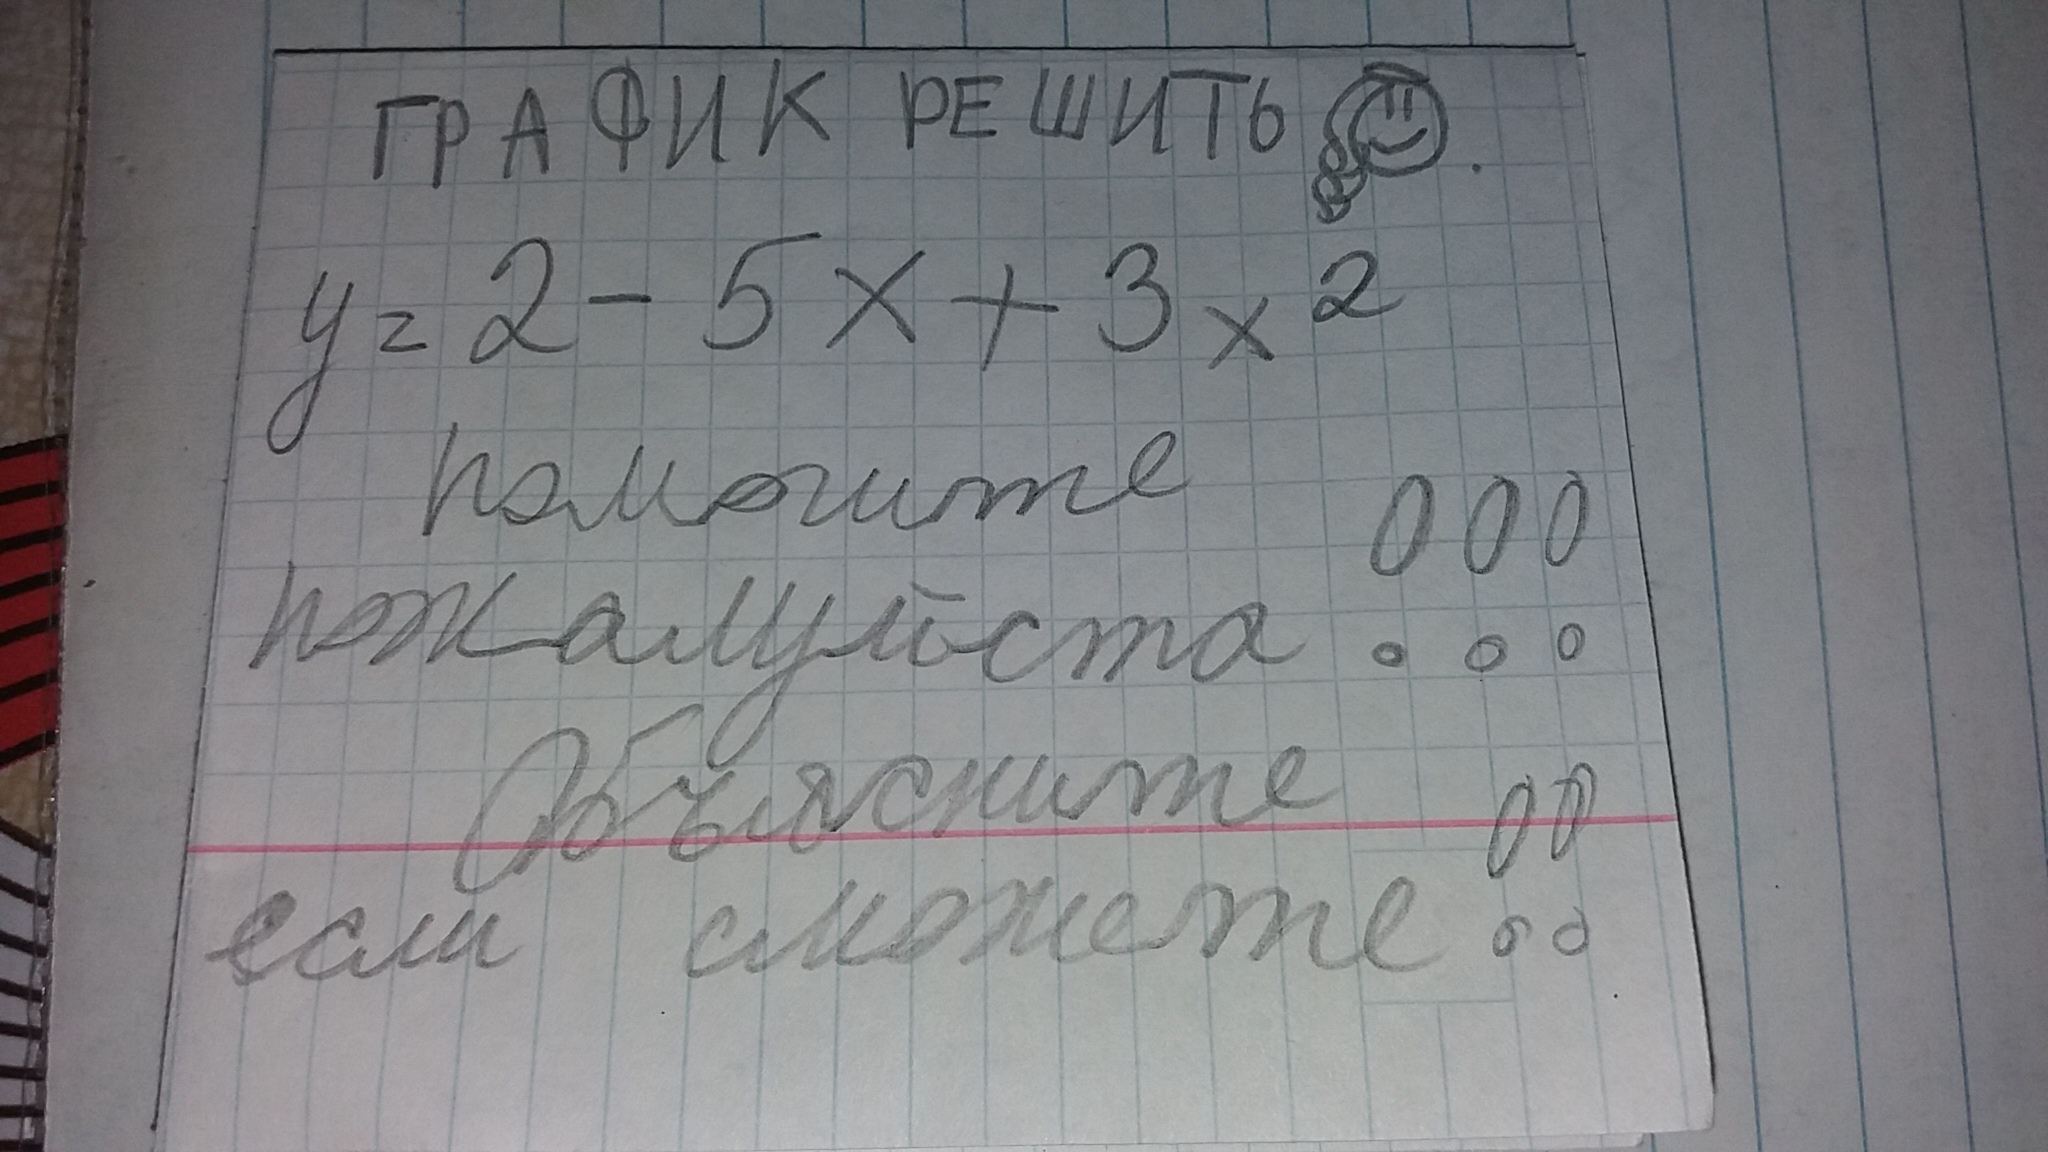 ГРАФИК РЕШИТЬ .
y = 2 - 5x + 3x²
помогите
пожалуйста !!!
Объясните
если сможете !!